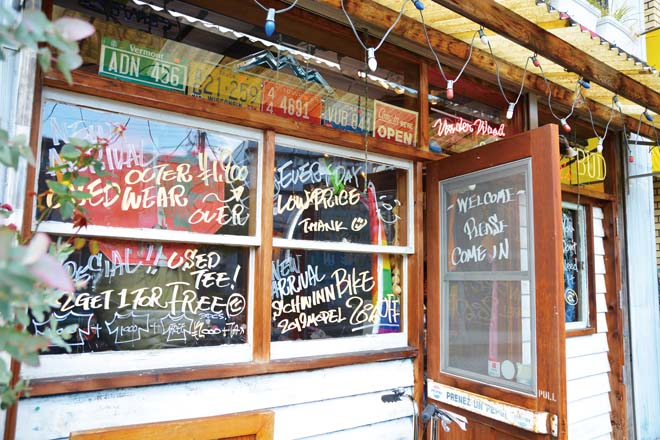 Vermont
ADN 456
21-259
WISCONSIN
4 4891
VUB 841
COME IN WE'RE
OPEN
BUD
NEW
ARRIVAL
OUTER ¥1,900
USED WEAR
OVER
EVERYDAY
LOW PRICE
THANK
SPECIAL!! USED
TEE!
2 GET 1 FOR FREE
NEW
ARRIVAL
SCHWINN BIKE
2019 MODEL 20% OFF
WELCOME
PLEASE
COME IN
PULL
PRENEZ UN PEPSI